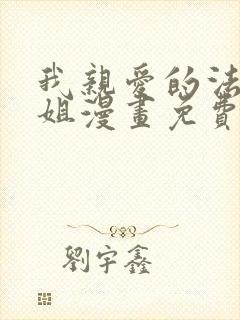 我親愛的法
姐漫畫免費
劉宇鑫